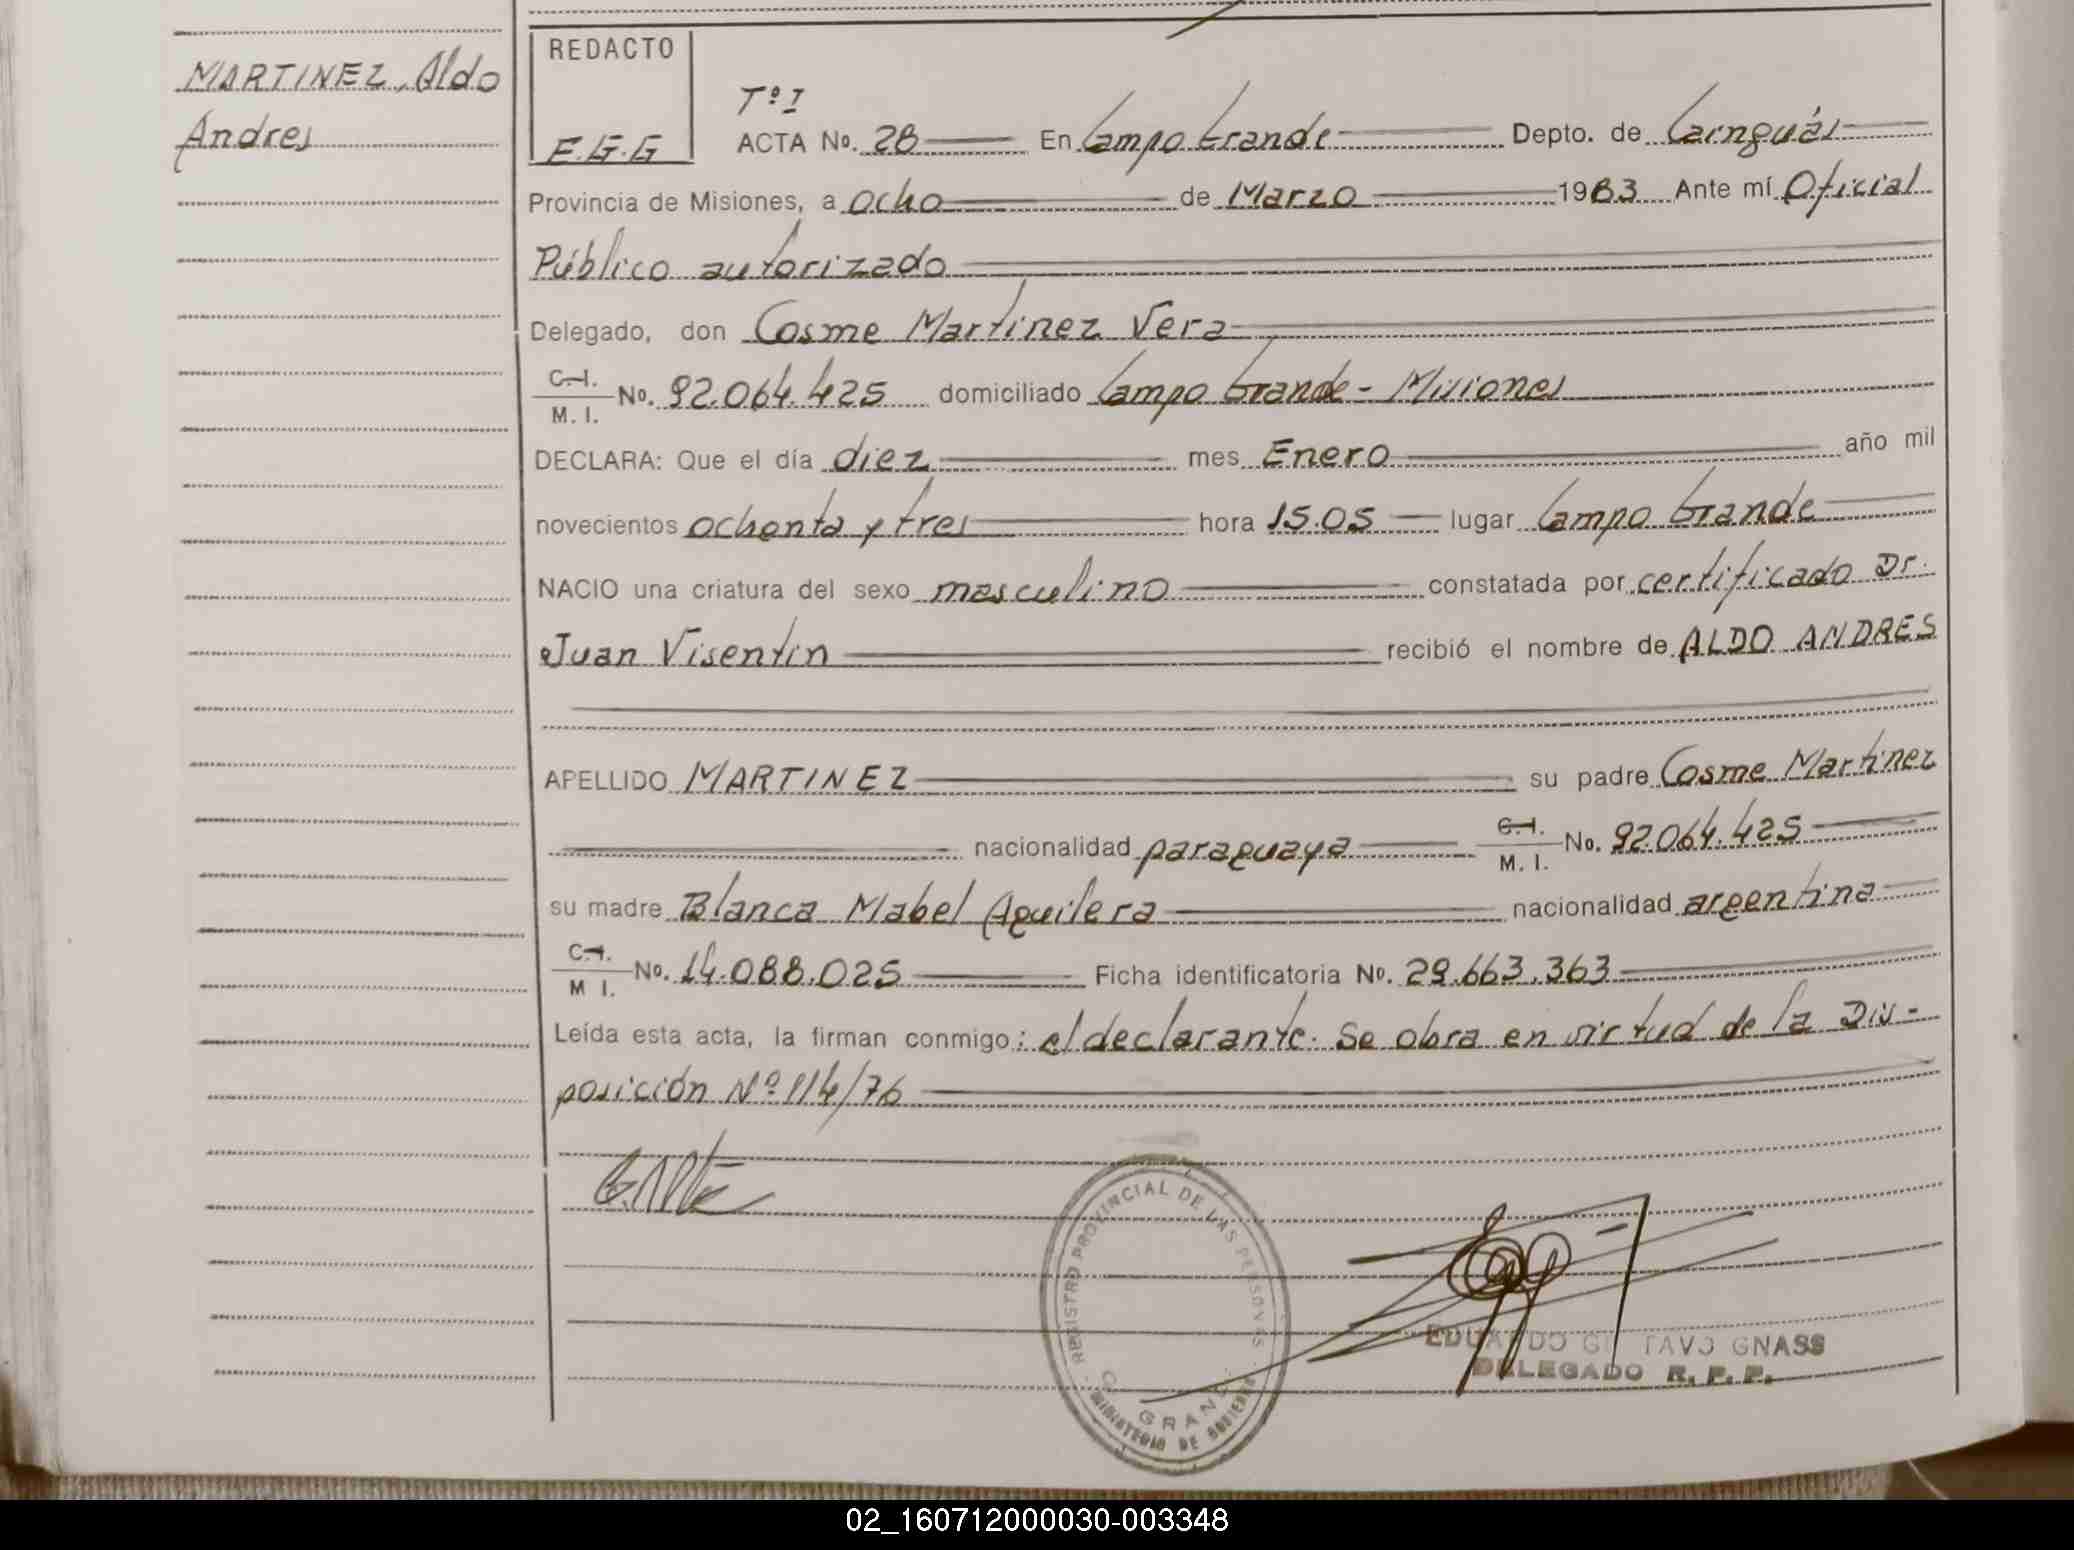 MARTINEZ, Aldo
Andres
REDACTO
E.G.G
Tº I
ACTA No. 28 En Campo Grande Depto. de Cainguás
Provincia de Misiones, a ocho de Marzo 1983 Ante mí Oficial
Público autorizado
Delegado, don Cosme Martinez Vera
C.I.
M. I. No. 92.064.425 domiciliado Campo Grande - Misiones
DECLARA: Que el día diez mes Enero año mil
novecientos ochenta y tres hora 15.05 lugar Campo Grande
NACIO una criatura del sexo masculino constatada por certificado Dr.
Juan Visentin recibió el nombre de ALDO ANDRES
APELLIDO MARTINEZ su padre Cosme Martinez
nacionalidad paraguaya C.I. M. I. No. 92.064.425
su madre Blanca Mabel Aguilera nacionalidad argentina
C.I.
M I. No. 14.088.025 Ficha identificatoria No. 29.663.363
Leída esta acta, la firman conmigo: el declarante. Se obra en virtud de la Dis-
posición Nº 114/76
REGISTRO PROVINCIAL DE LAS PERSONAS
GRANDE
MINISTERIO DE GOBIERNO
EDUARDO GUSTAVO GNASS
DELEGADO R. P. P.
02_160712000030-003348